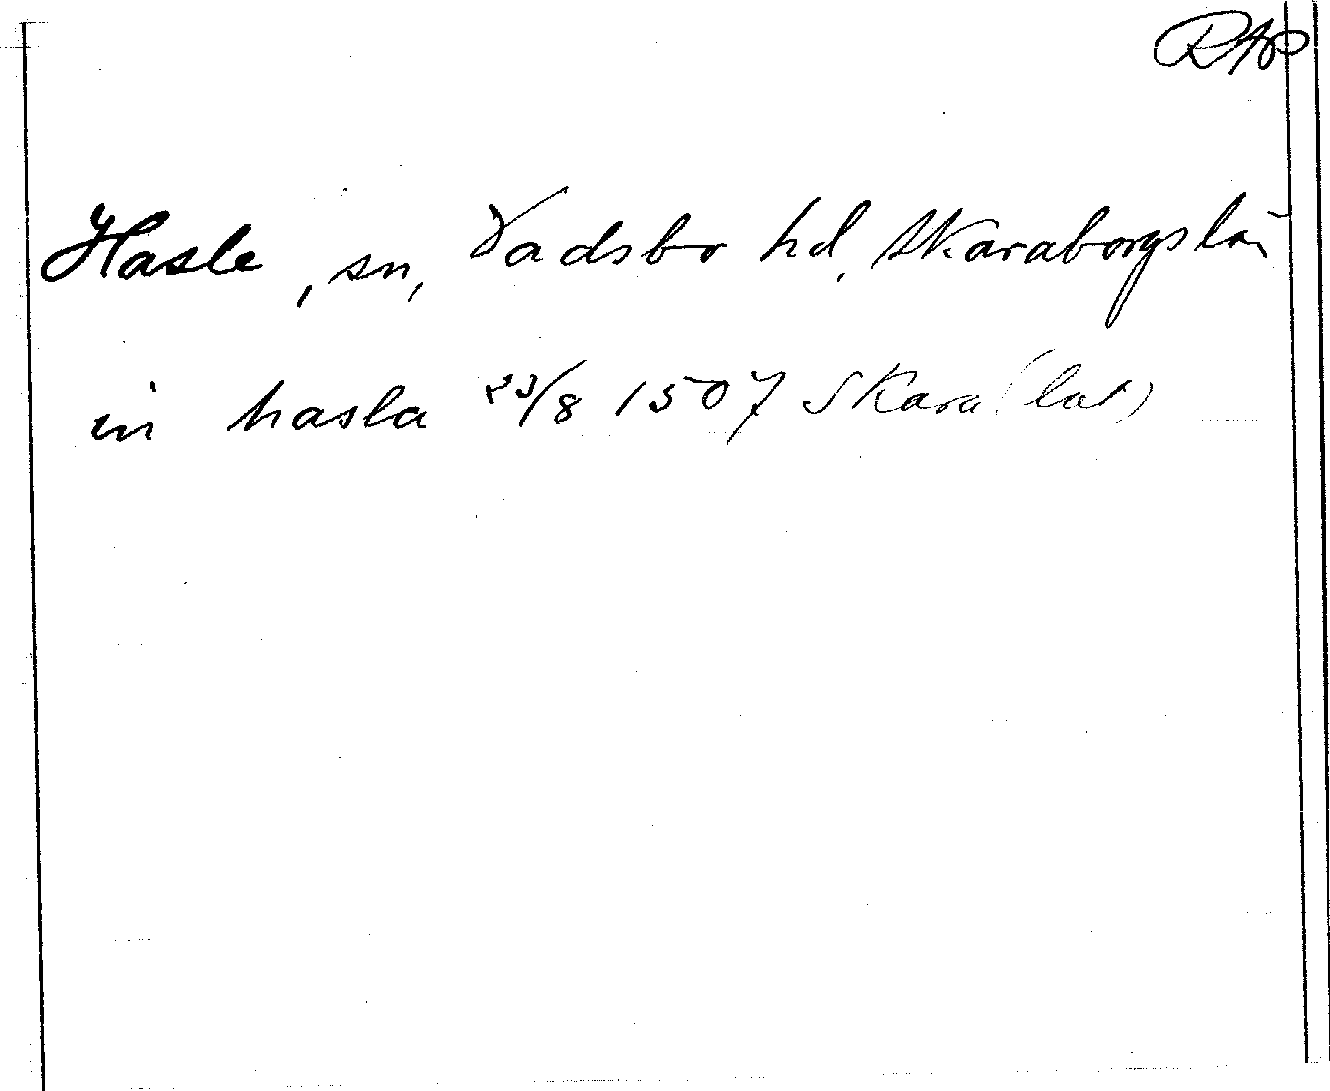 RAP
Hasle, sn, Vadsbo hd, Skaraborgs län
in hasla 23/8 1507 Skara (lat)